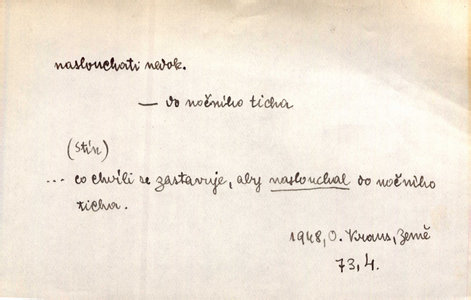 naslouchati nedok.
— do nočního ticha
(stín)
... co chvíli se zastavuje, aby naslouchal do nočního
ticha.
1948, O. Kraus, Země
73, 4.